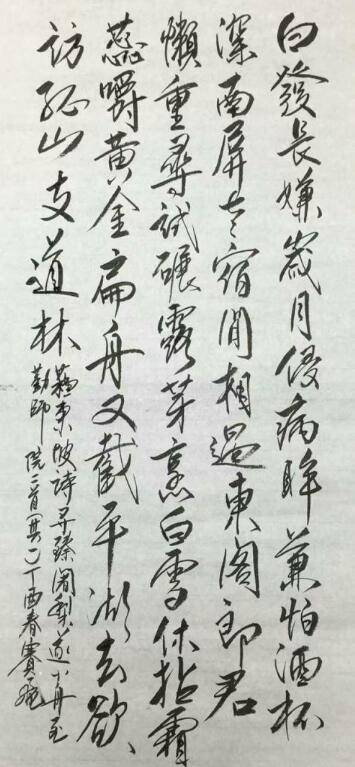 白發長嫌嵗月侵病眸兼怕酒杯
深南屏老宿閒相過東阁郎君
懒重尋試碾露芽烹白雪休拈霜
蕊嚼黄金扁舟又截平湖去欲
訪孤山支道林
蘇東坡詩尋臻闍梨遂小舟至
勤師院二首(其一)丁酉春